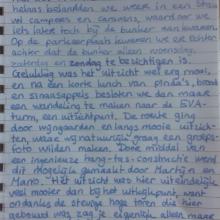 helaas belandden we weer in een stau
vol campers en caravans, waardoor we
iets later toch bij de bunker aan kwamen.
Op de parkeerplaats kwamen we er echter
achter dat de bunker alleen woensdag,
zaterdag en zondag te bezichtigen is.
Gelukkig was het uitzicht wel erg mooi,
en na een korte lunch van pinda's, brood
en sinaasappels besloten we dan maar
een wandeling te maken naar de EVA-
turm, een uitzichtpunt. De route ging
door wijngaarden en langs mooie uitzich-
ten, waar wij natuurlijk graag een groeps
foto wilden maken. Door middel van
een ingenieuze hang-tas-constructie werd
dit mogelijk gemaakt door Martijn en
Mark. Het uitzicht was hier uiteindelijk
veel mooier dan bij het uitkijkpunt, want
ondanks de stevige hoge toren die hier
gebouwd was, zag je eigenlijk alleen maar